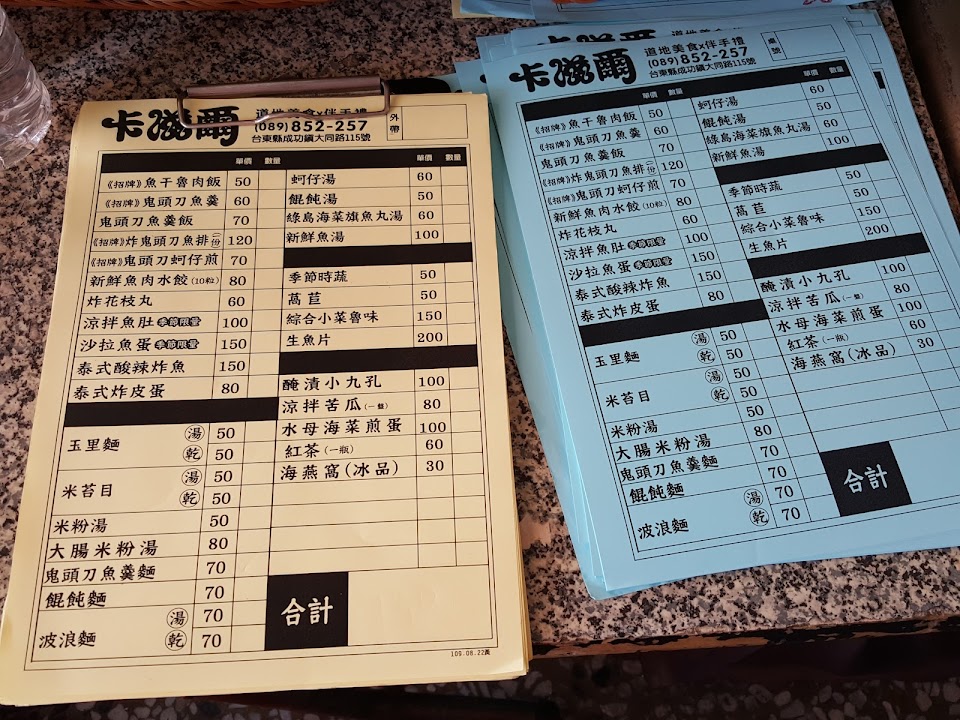 卡滋爾
道地美食x伴手禮
(089)852-257
台東縣成功鎮大同路115號
外帶
單價 數量 單價 數量
《招牌》魚干魯肉飯 50
《招牌》鬼頭刀魚羹 60
鬼頭刀魚羹飯 70
《招牌》炸鬼頭刀魚排(一份) 120
《招牌》鬼頭刀蚵仔煎 70
新鮮魚肉水餃(10粒) 80
炸花枝丸 60
涼拌魚肚 季節限量 100
沙拉魚蛋 季節限量 150
泰式酸辣炸魚 150
泰式炸皮蛋 80
玉里麵 湯 50
乾 50
米苔目 湯 50
乾 50
米粉湯 50
大腸米粉湯 80
鬼頭刀魚羹麵 70
餛飩麵 70
波浪麵 湯 70
乾 70
蚵仔湯 60
餛飩湯 50
綠島海菜旗魚丸湯 60
新鮮魚湯 100
季節時蔬 50
萵苣 50
綜合小菜魯味 150
生魚片 200
醃漬小九孔 100
涼拌苦瓜(一盤) 80
水母海菜煎蛋 100
紅茶(一瓶) 60
海燕窩(冰品) 30
合計
109.08.22萬
卡滋爾
道地美食x伴手禮
(089)852-257
台東縣成功鎮大同路115號
桌號
單價 數量 單價 數量
《招牌》魚干魯肉飯 50
《招牌》鬼頭刀魚羹 60
鬼頭刀魚羹飯 70
《招牌》炸鬼頭刀魚排(一份) 120
《招牌》鬼頭刀蚵仔煎 70
新鮮魚肉水餃(10粒) 80
炸花枝丸 60
涼拌魚肚 季節限量 100
沙拉魚蛋 季節限量 150
泰式酸辣炸魚 150
泰式炸皮蛋 80
玉里麵 湯 50
乾 50
米苔目 湯 50
乾 50
米粉湯 50
大腸米粉湯 80
鬼頭刀魚羹麵 70
餛飩麵 70
波浪麵 湯 70
乾 70
蚵仔湯 60
餛飩湯 50
綠島海菜旗魚丸湯 60
新鮮魚湯 100
季節時蔬 50
萵苣 50
綜合小菜魯味 150
生魚片 200
醃漬小九孔 100
涼拌苦瓜(一盤) 80
水母海菜煎蛋 100
紅茶(一瓶) 60
海燕窩(冰品) 30
合計